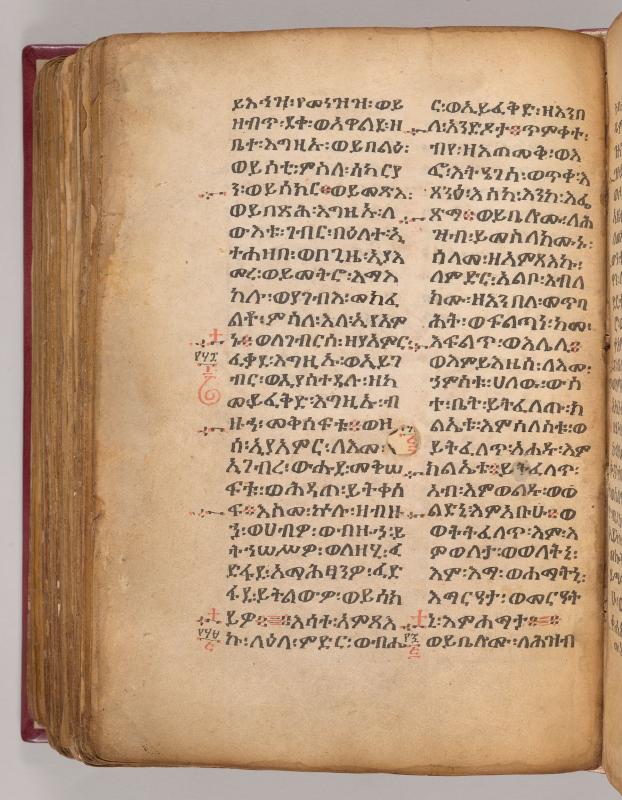 ዘብጥ፡ ደቀ፡ ወአዋልደ፡ ዘ
ቤተ፡ እግዚኡ፡ ወይበልዕ፡
ወይሰቲ፡ ምስለ፡ ሰካርያ
ን፡ ወይሰክር፡ ወይመጽእ፡
ወይበጽሕ፡ እግዚኡ፡ ለ
ውእቱ፡ ገብር፡ በዕለት፡ ኢ
ተሐዘበ፡ ወበጊዜ፡ ኢያአ
መረ፡ ወይመትሮ፡ እማእ
ከሉ፡ ወያገብእ፡ መክፈ
ልቶ፡ ምስለ፡ እለ፡ ኢየአም
ኑ። ወለገብርሰ፡ ዘያአምር፡
ፈቃደ፡ እግዚኡ፡ ወኢይገ
ብር፡ ወኢያስተዴሉ፡ ዘከ
መ፡ ይፈቅድ፡ እግዚኡ፡ ብ
ዙኅ፡ መቅሠፍቱ። ወዘ
ሰ፡ ኢያአምር፡ ለእመ፡
አገብረ፡ ውሑደ፡ መቅሠ
ፍቱ። ወሕዳጠ፡ ይትቀሠ
ፍ። እስመ፡ ኵሉ፡ ዘብዙ
ኀ፡ ወሀብዎ፡ ወብዙኀ፡ ይ
ትኀሠሥዎ፡ ወለዘሂ፡ ፈ
ድፋደ፡ አማሕፀንዎ፡ ፈድ
ፋደ፡ ይትልውዎ፡ ወይሰክ
ይዎ። እሳተ፡ እምጻእ
ኩ፡ ላዕለ፡ ምድር፡ ወብሔ
ር፡ ወኢይፈቅድ፡ ዘእንበ
ለ፡ እንድዶታ። ጥምቀተ፡
ብየ፡ ዘእጠመቅ፡ ወአ
ፎ፡ እትዔገሥ፡ ወጥቀ፡ አ
ጸንዕ፡ እስከ፡ እንከ፡ እፌ
ጽማ። ወይቤሎሙ፡ ለሕ
ዝብ፡ ይመስለክሙኑ፡
ሰላመ፡ ዘእምጻእኩ፡
ለምድር፡ አልቦ፡ እብለ
ክሙ፡ ዘእንበለ፡ መጥባ
ሕት፡ ወፍልጣነ፡ ከመ፡
እፍልጥ፡ ወእሌሊ።
ወእምይእዜሰ፡ ለእመ፡
ኀምስቱ፡ ሀለው፡ ውስ
ተ፡ ቤት፡ ይትፈለጡ፡ ክ
ልኤቱ፡ እምሠለስቱ፡ ወ
ይትፈለጥ፡ አሐዱ፡ እም
ክልኤቱ። ይትፈለጥ፡
አብ፡ እምወልዱ፡ ወወ
ልድኒ፡ እምአቡሁ። ወ
ወትትፈለጥ፡ እም፡ እ
ምወለታ፡ ወወለትኒ፡
እም፡ እማ፡ ወሐማትኒ፡
እመርዓታ፡ ወመርዓት
ኒ፡ እምሐማታ።
ወይቤሎሙ፡ ለሕዝብ